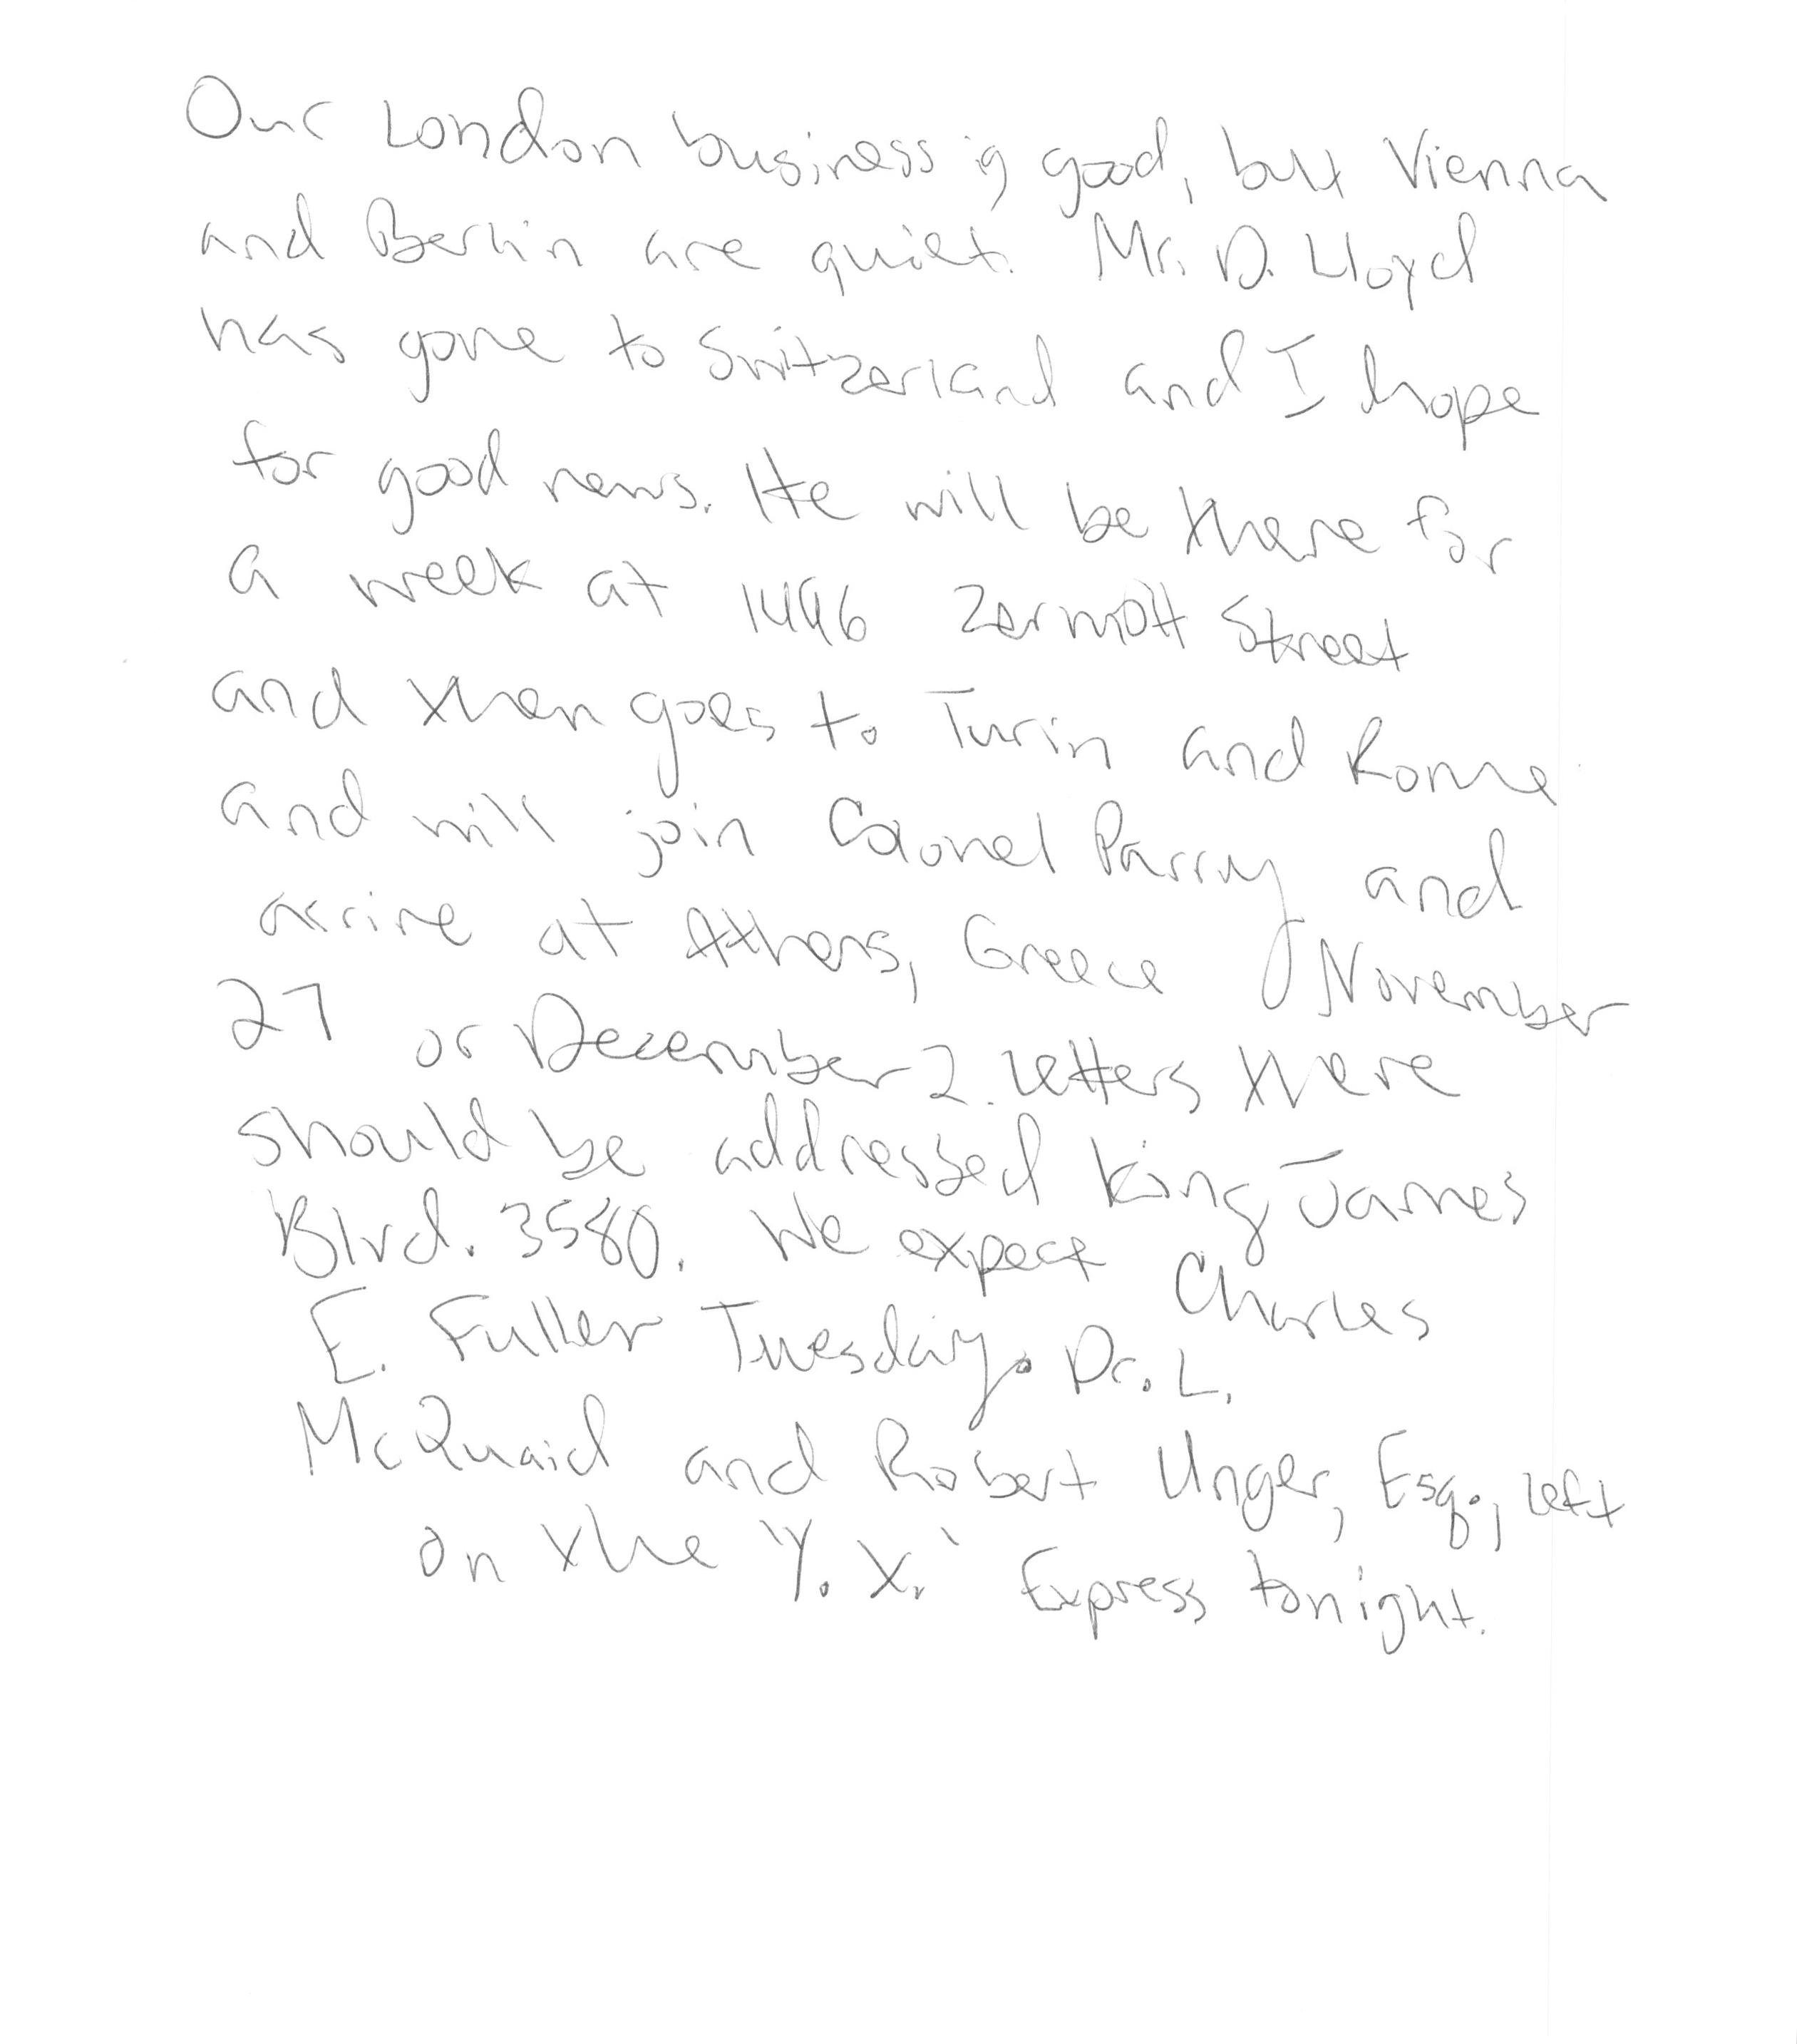 Our London business is good, but Vienna
and Berlin are quiet. Mr. D. Lloyd
has gone to Switzerland and I hope
for good news. He will be there for
a week at 1496 Zermott Street
and then goes to Turin and Rome
and will join Colonel Parry and
arrive at Athens, Greece November
27 or December 2. Letters there
should be addressed King James
Blvd. 3580. We expect Charles
E. Fuller Tuesday. Dr. L.
McQuaid and Robert Unger, Esq., left
on the "Y. X." Express tonight.